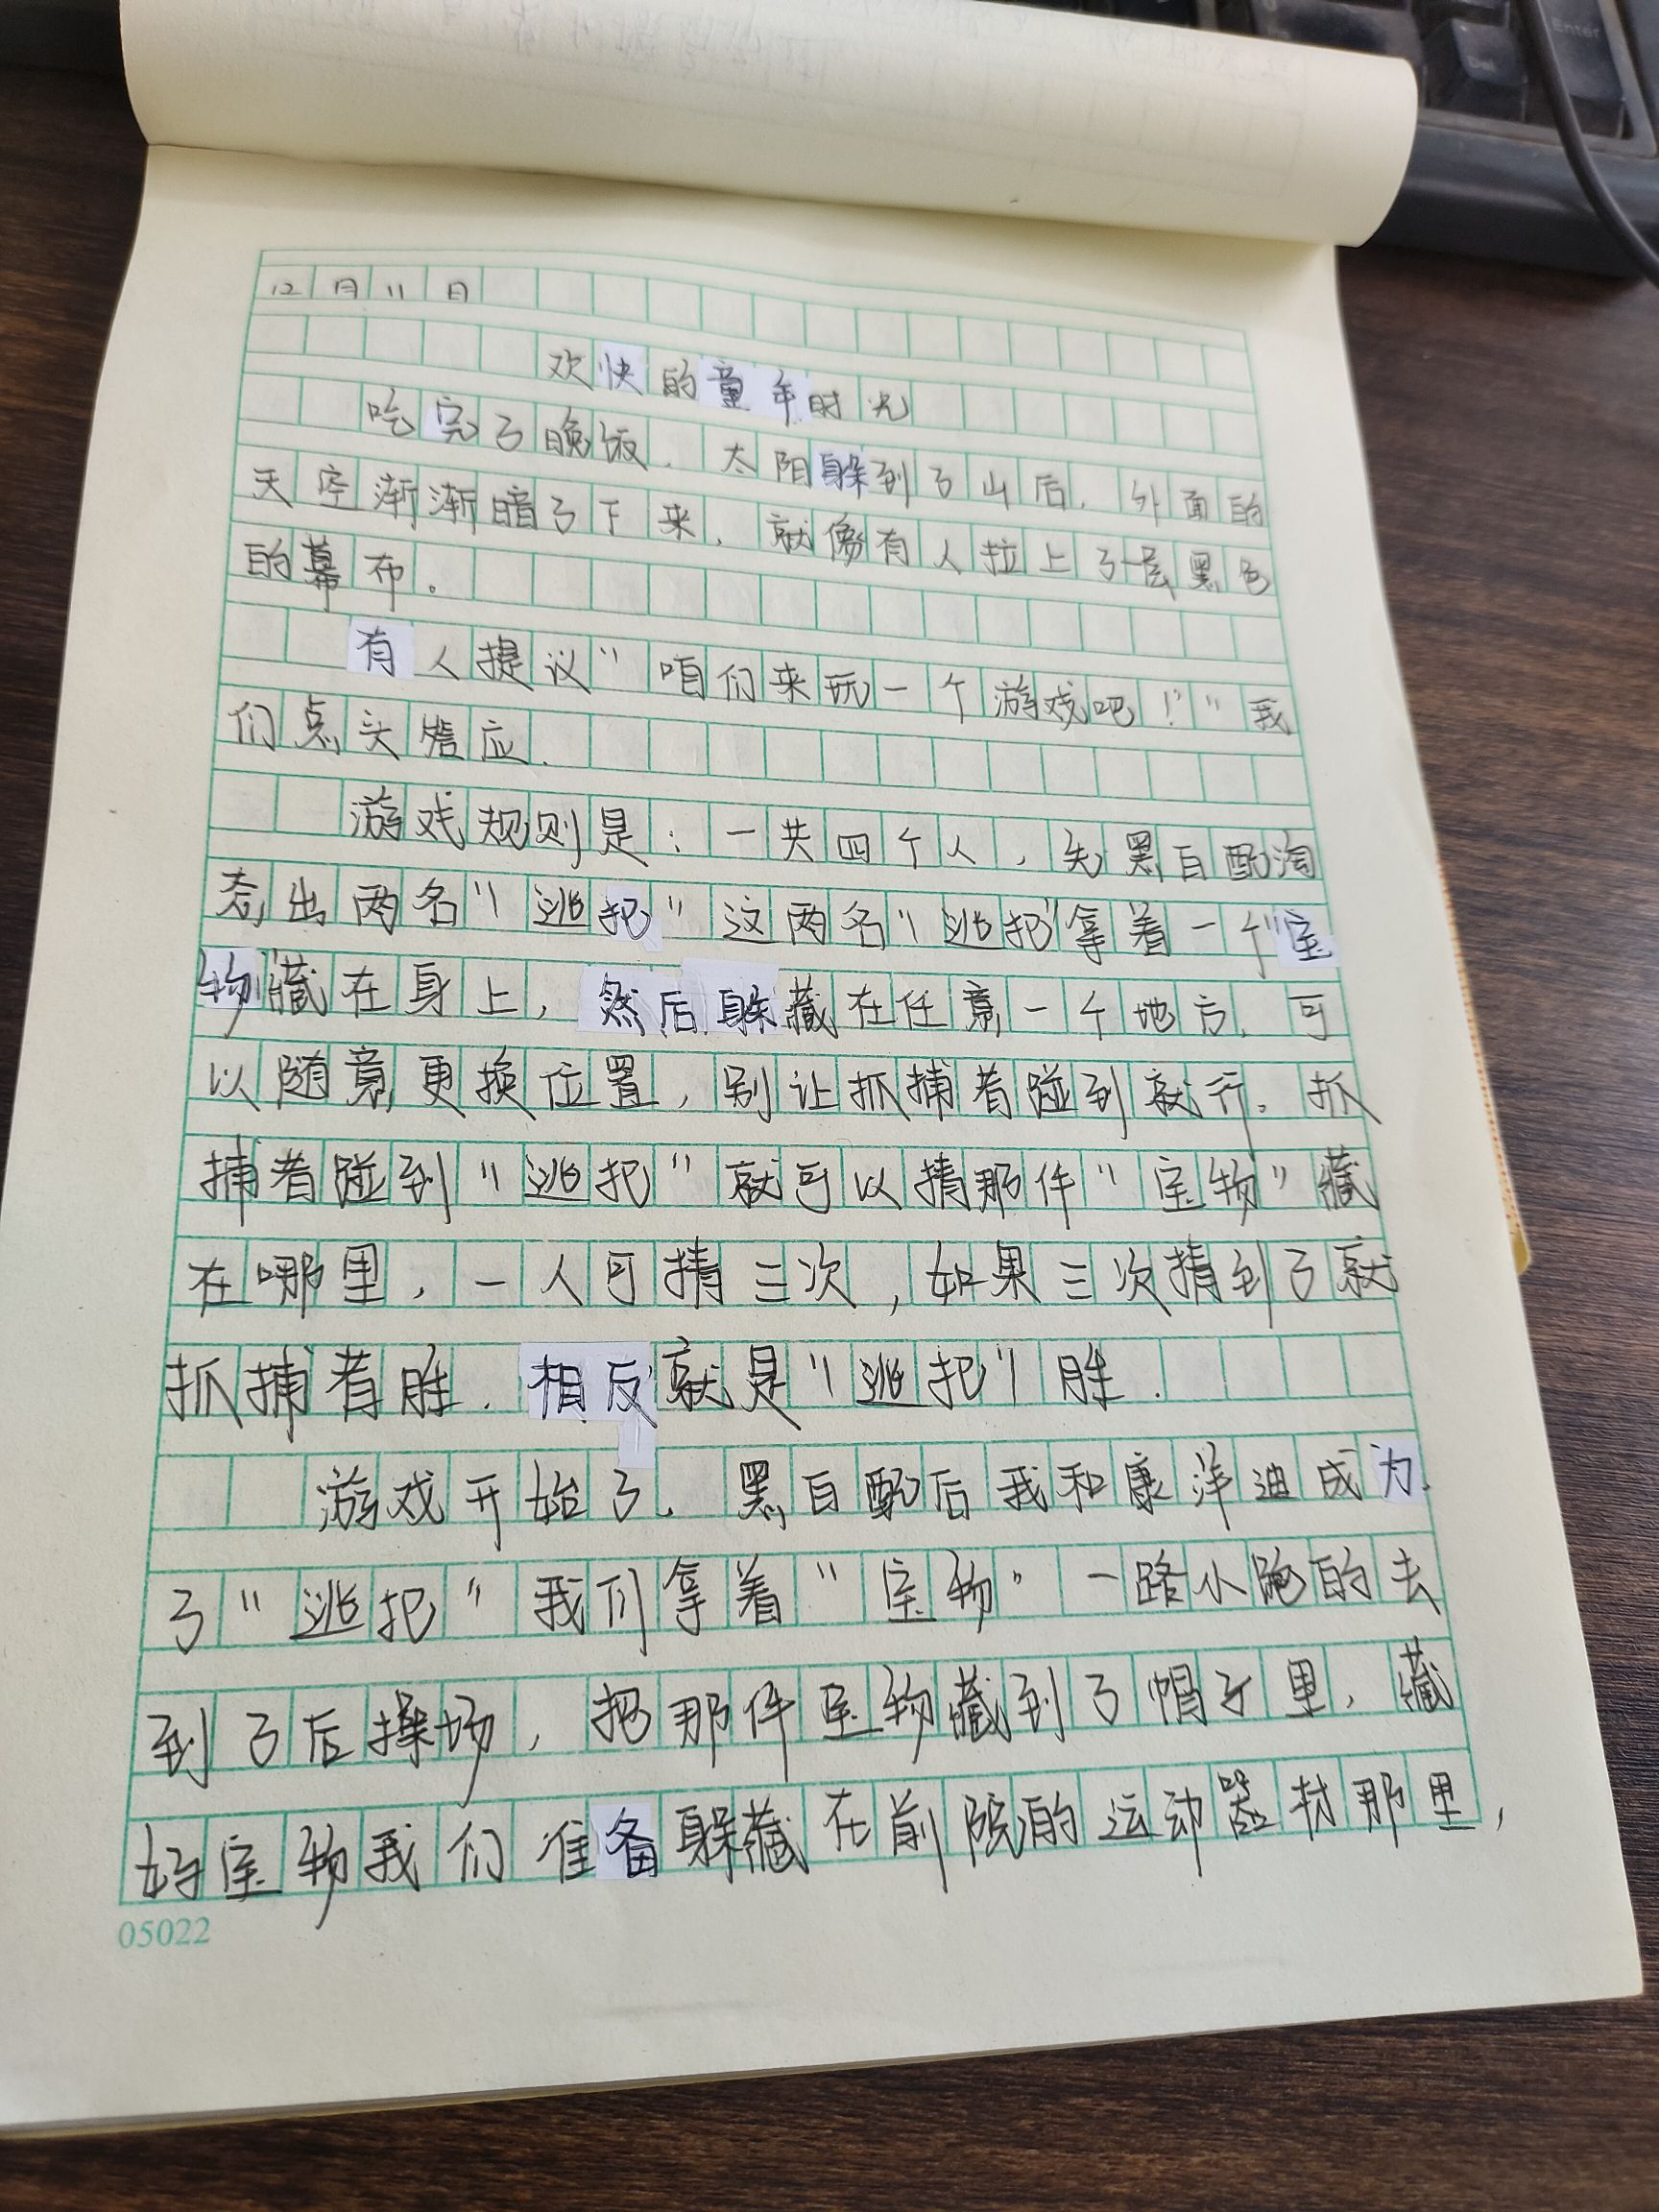 12月11日
欢快的童年时光
吃完了晚饭，太阳躲到了山后，外面的
天空渐渐暗了下来，就像有人拉上了一层黑色
的幕布。
有人提议“咱们来玩一个游戏吧！”我
们点头答应。
游戏规则是：一共四个人，先黑白配淘
态出两名“逃犯”这两名“逃犯”拿着一个“宝
物”藏在身上，然后躲藏在任意一个地方，可
以随意更换位置，别让抓捕者碰到就行。抓
捕者碰到“逃犯”就可以猜那件“宝物”藏
在哪里，一人可猜三次，如果三次猜到了就
抓捕者胜，相反就是“逃犯”胜。
游戏开始了，黑白配后我和康洋迪成为
了“逃犯”我们拿着“宝物”一路小跑的去
到了后操场，把那件宝物藏到了帽子里，藏
好宝物我们准备躲藏在前院的运动器材那里，
05022
Enter
Del